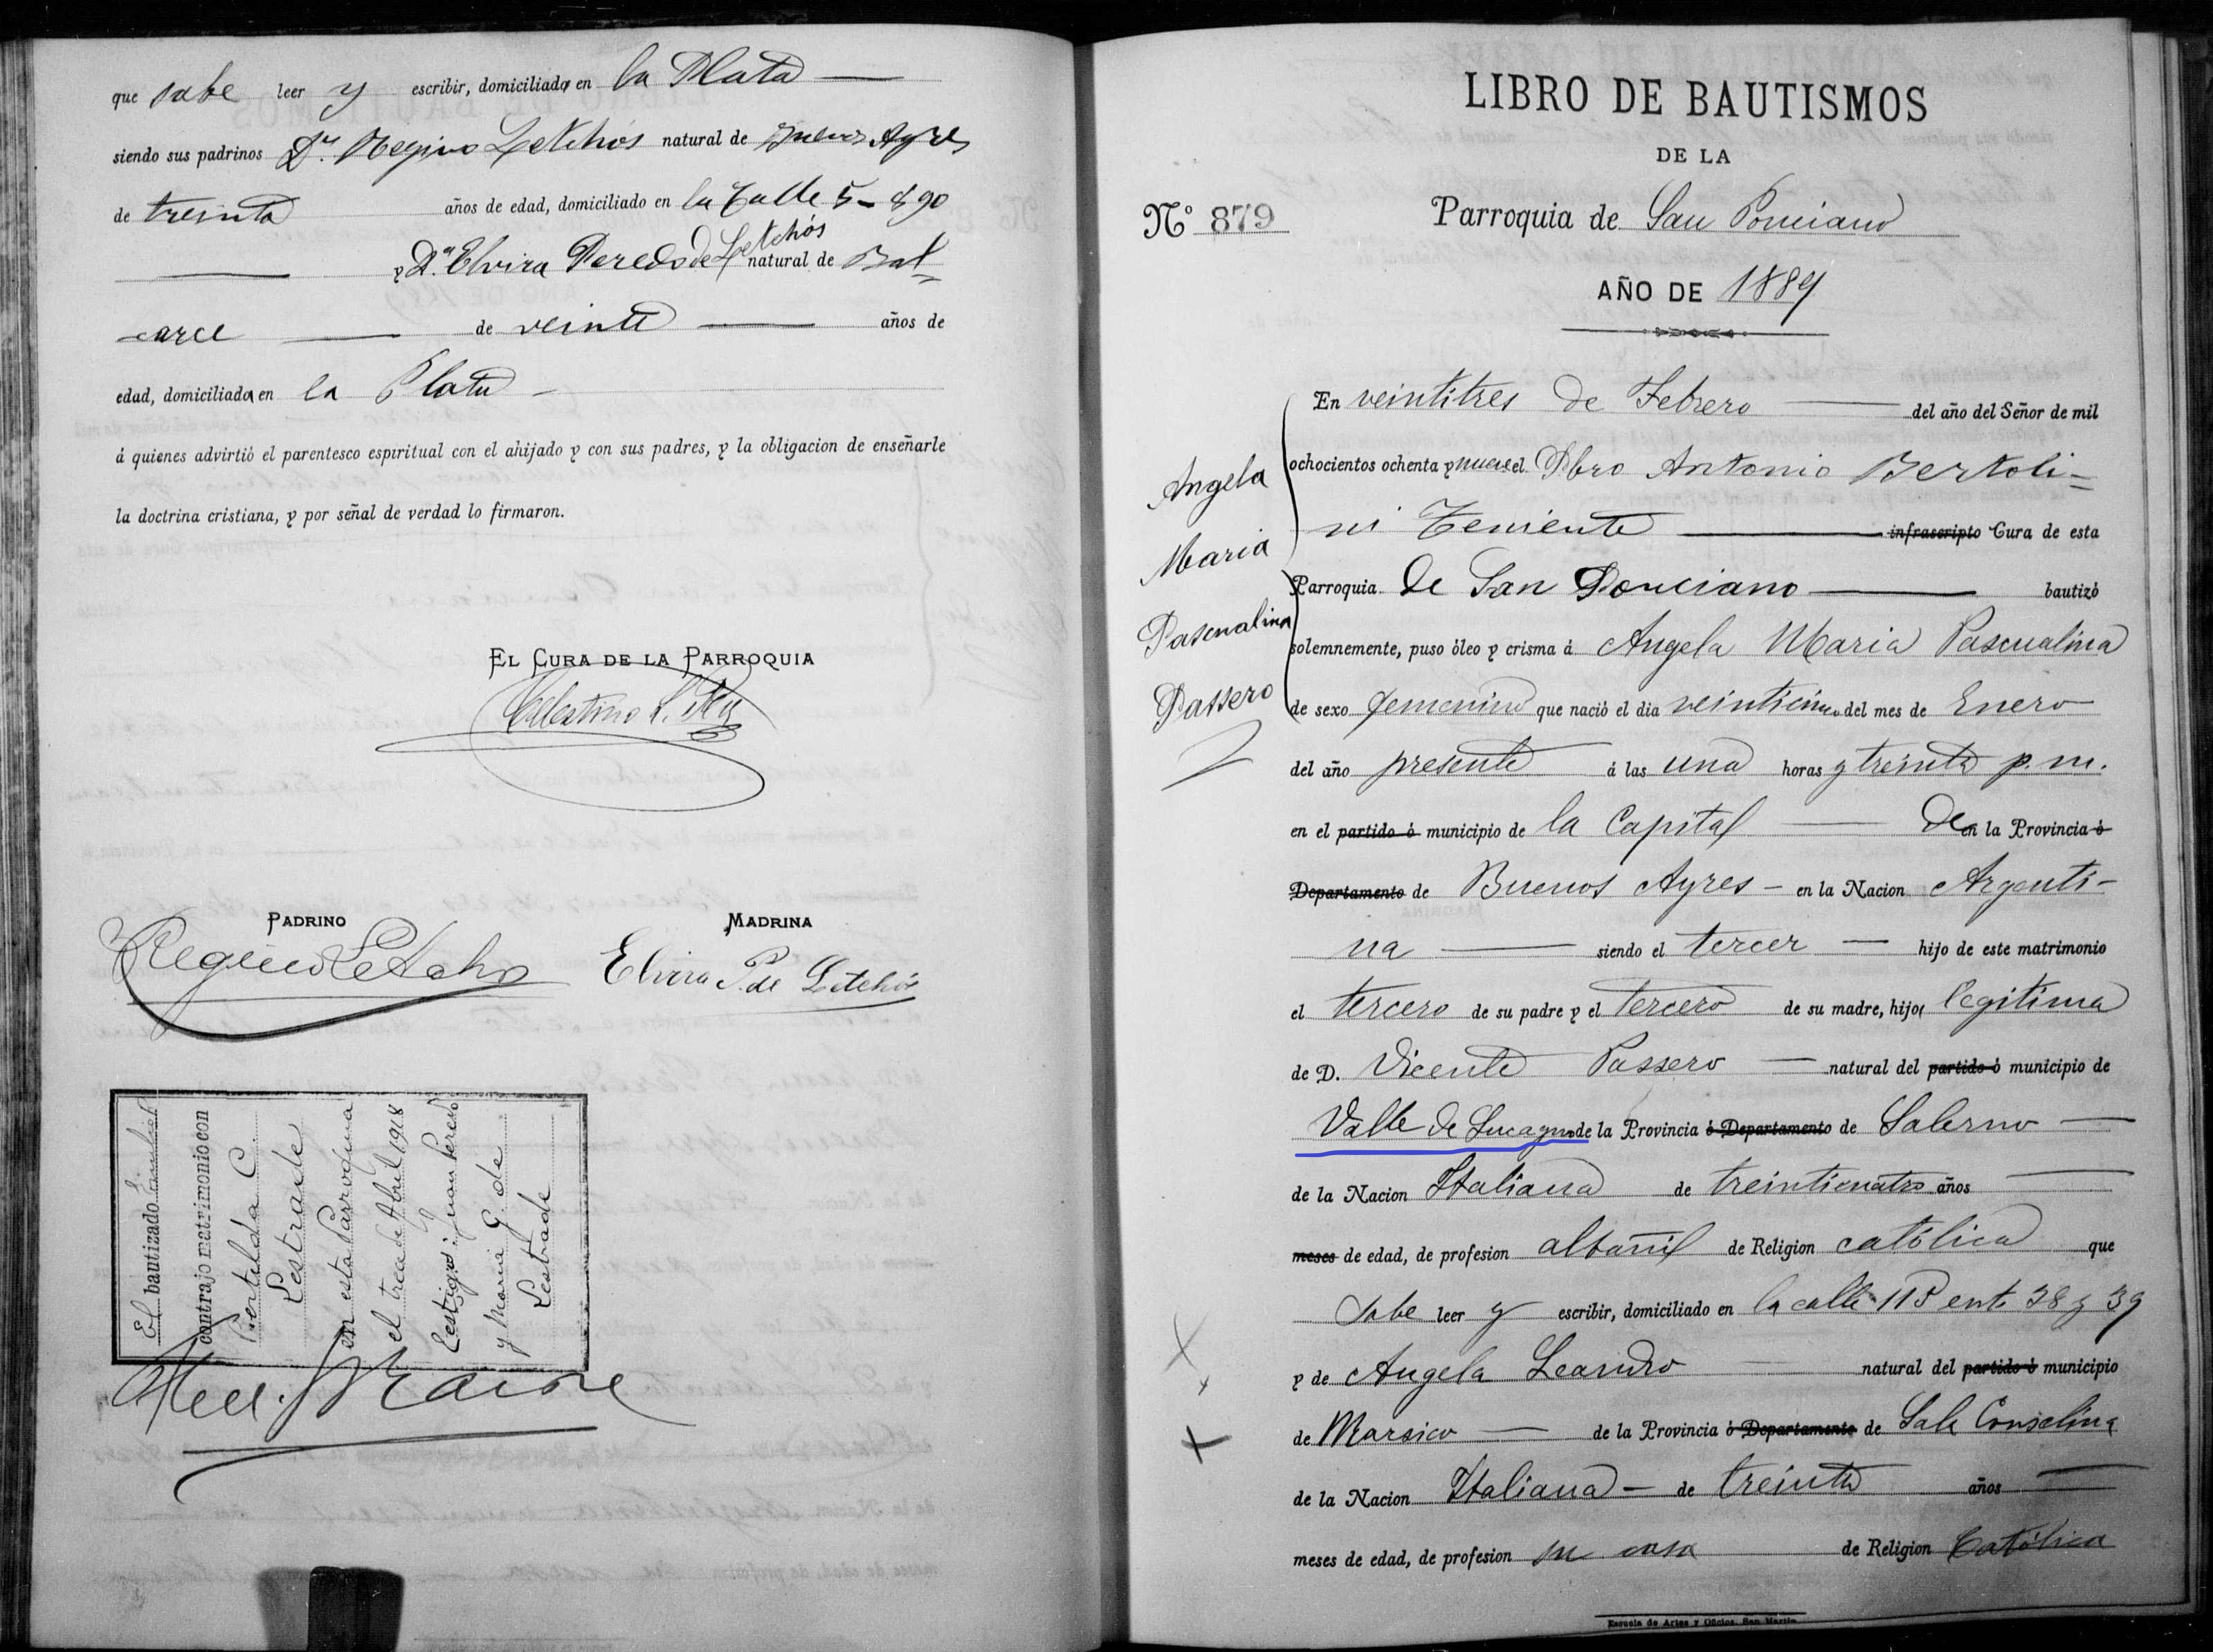 que sabe leer y escribir, domiciliado en la Plata
siendo sus padrinos Dn. Regino Letchós natural de Buenos Ayres
de treinta años de edad, domiciliado en la Calle 5 - 890
y Da. Elvira Peredo de Letchós natural de Bal=
carce de veinte años de
edad, domiciliada en la Plata -
á quienes advirtió el parentesco espiritual con el ahijado y con sus padres, y la obligacion de enseñarle
la doctrina cristiana, y por señal de verdad lo firmaron.
EL CURA DE LA PARROQUIA
Celestino L.
PADRINO MADRINA
Regino Letchós Elvira P. de Letchós
El bautizado
contrajo matrimonio con
Bertilda C.
Lestrade
en esta Parroquia
el trece de Abril 1918
Testigos: Juan Peredo
y Maria G. de
Lestrade
LIBRO DE BAUTISMOS
DE LA
No 879 Parroquia de San Ponciano
AÑO DE 1889
Angela
Maria
Pascualina
Passero
En veintitres de Febrero del año del Señor de mil
ochocientos ochenta y nueve el Pbro Antonio Bertoli=
ni Teniente infrascripto Cura de esta
Parroquia de San Ponciano bautizó
solemnemente, puso óleo y crisma á Angela Maria Pascualina
de sexo femenino que nació el dia veinticinco del mes de Enero
del año presente á las una horas y treinta p.m.
en el partido ó municipio de la Capital de en la Provincia ó
Departamento de Buenos Ayres - en la Nacion Argenti-
na siendo el tercer hijo de este matrimonio
el tercero de su padre y el tercero de su madre, hija legitima
de D. Vicente Passero natural del partido ó municipio de
Valle de Lucagno de la Provincia ó Departamento de Salerno
de la Nacion Italiana de treinticuatro años
meses de edad, de profesion albañil de Religion católica que
sabe leer y escribir, domiciliado en la calle 115 ente 38 y 39
y de Angela Leandro natural del partido ó municipio
de Marsico de la Provincia ó Departamento de Sala Consalina
de la Nacion Italiana - de treinta años
meses de edad, de profesion su casa de Religion Católica
Escuela de Artes y Oficios. San Martin